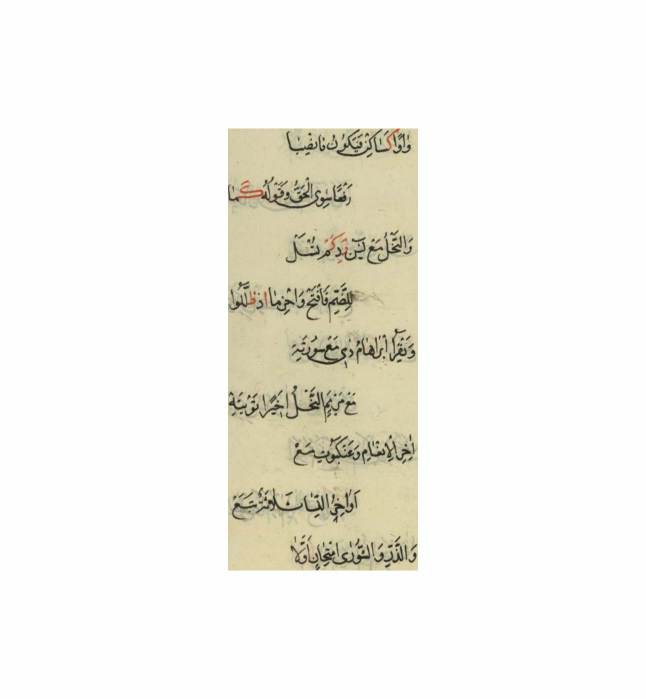 وَاوًا كَسَا كُنْ فَيَكُونُ فَانْصِبَا
رَفْعًا سِوَى الْحَقُّ وَقَوْلُهُ كَمَا
وَالنَّحْلُ مَعْ يسٓ رُدْ كَمْ تُسْئَلُ
لِلضَّمِّ فَافْتَحْ وَاجْزِمًا اذ ظَلَّلُوا
وَيَقْرَأُ ابْرَاهَامَ ذِى مَعْ سُورَتِهْ
مَعْ مَرْيَمَ النَّحْلُ اَخِيرًا تَوْبَتِهْ
اٰخِرَ الْاَنْعَامِ وَعَنْكَبُوتٍ مَعْ
اَوَاخِرِ النِّسَا ثَلَاثَةٌ تَبَعْ
وَالذَّرْوِ وَالشُّورٰى امْتِحَانٍ اَوَّلَا